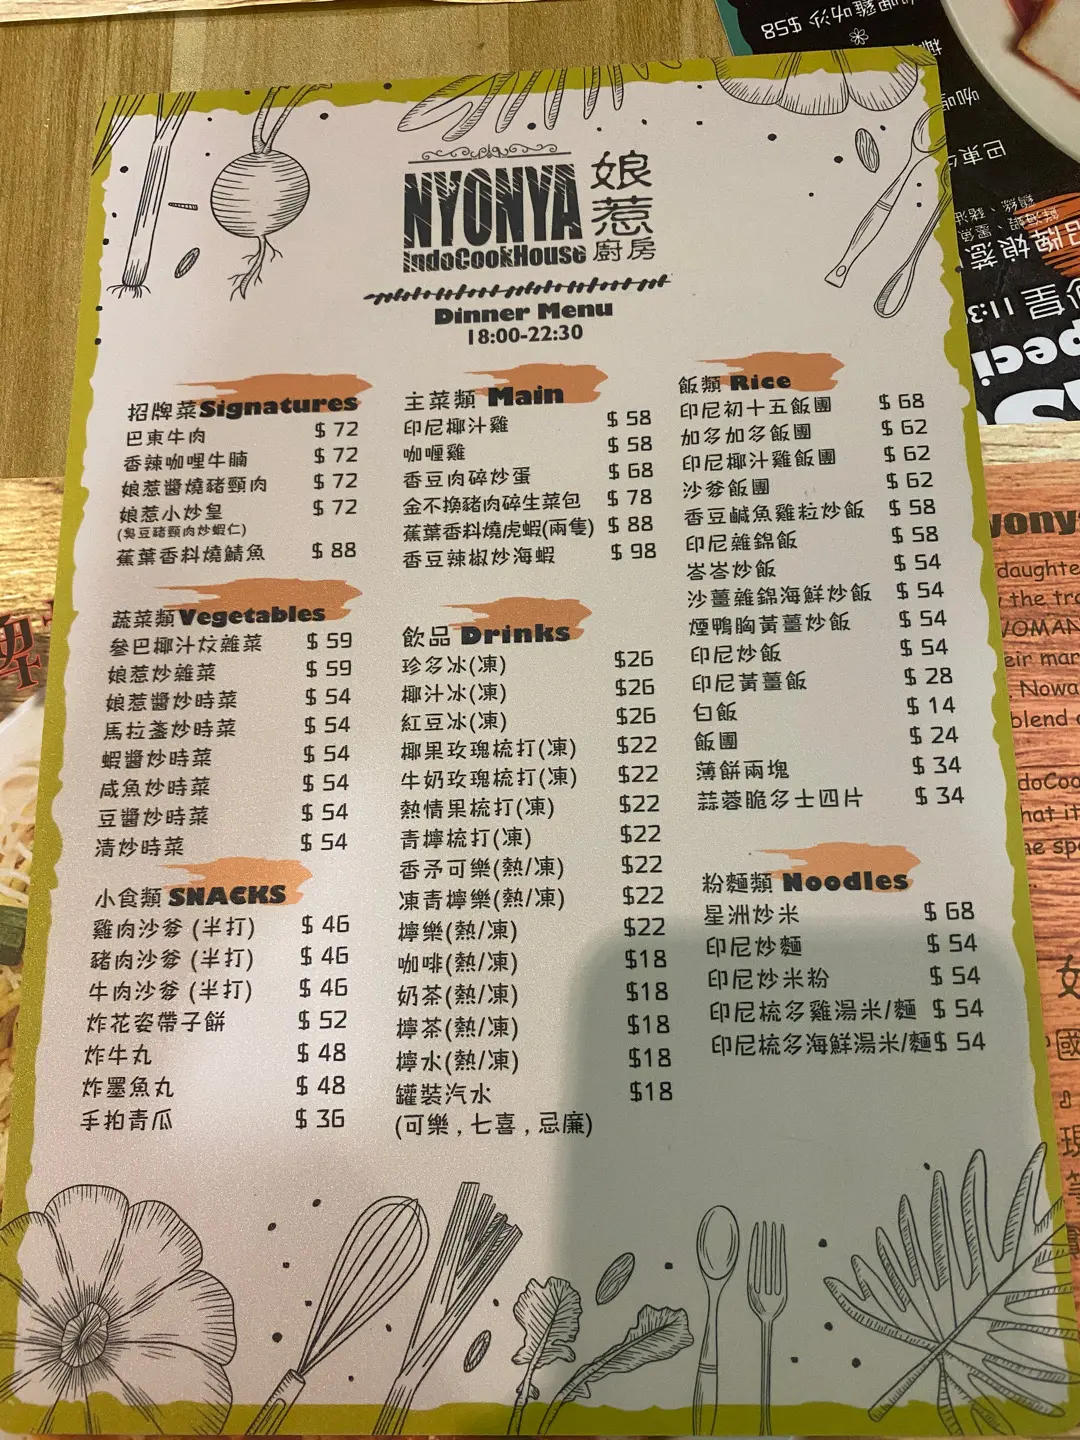 NYONYA
IndoCookHouse
娘惹
廚房
Dinner Menu
18:00-22:30
招牌菜Signatures
巴東牛肉 $ 72
香辣咖哩牛腩 $ 72
娘惹醬燒豬頸肉 $ 72
娘惹小炒皇 $ 72
(臭豆豬頸肉炒蝦仁)
蕉葉香料燒鯖魚 $ 88
蔬菜類Vegetables
參巴椰汁炆雜菜 $ 59
娘惹炒雜菜 $ 59
娘惹醬炒時菜 $ 54
馬拉盞炒時菜 $ 54
蝦醬炒時菜 $ 54
咸魚炒時菜 $ 54
豆醬炒時菜 $ 54
清炒時菜 $ 54
小食類 SNACKS
雞肉沙爹 (半打) $ 46
豬肉沙爹 (半打) $ 46
牛肉沙爹 (半打) $ 46
炸花姿帶子餅 $ 52
炸牛丸 $ 48
炸墨魚丸 $ 48
手拍青瓜 $ 36
主菜類 Main
印尼椰汁雞 $ 58
咖喱雞 $ 58
香豆肉碎炒蛋 $ 68
金不換豬肉碎生菜包 $ 78
蕉葉香料燒虎蝦(兩隻) $ 88
香豆辣椒炒海蝦 $ 98
飲品 Drinks
珍多冰(凍) $26
椰汁冰(凍) $26
紅豆冰(凍) $26
椰果玫瑰梳打(凍) $22
牛奶玫瑰梳打(凍) $22
熱情果梳打(凍) $22
青檸梳打(凍) $22
香茅可樂(熱/凍) $22
凍青檸樂(熱/凍) $22
檸樂(熱/凍) $22
咖啡(熱/凍) $18
奶茶(熱/凍) $18
檸茶(熱/凍) $18
檸水(熱/凍) $18
罐裝汽水 $18
(可樂 , 七喜 , 忌廉)
飯類 Rice
印尼初十五飯團 $ 68
加多加多飯團 $ 62
印尼椰汁雞飯團 $ 62
沙爹飯團 $ 62
香豆鹹魚雞粒炒飯 $ 58
印尼雜錦飯 $ 58
峇峇炒飯 $ 54
沙薑雜錦海鮮炒飯 $ 54
煙鴨胸黃薑炒飯 $ 54
印尼炒飯 $ 54
印尼黃薑飯 $ 28
白飯 $ 14
飯團 $ 24
薄餅兩塊 $ 34
蒜蓉脆多士四片 $ 34
粉麵類 Noodles
星洲炒米 $ 68
印尼炒麵 $ 54
印尼炒米粉 $ 54
印尼梳多雞湯米/麵 $ 54
印尼梳多海鮮湯米/麵$ 54
daughte
the tra
WOMAN
eir mar
. Nowa
blend
doCoo
hat it
he spe